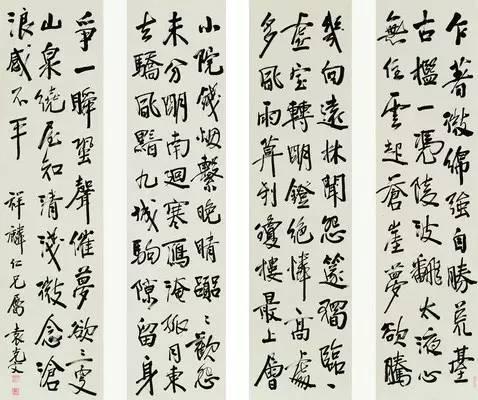 乍著微綿強自勝荒臺
古檻一憑陵波翻太液心
無住雲起蒼崖夢欲騰
幾向遠林聞怨篴獨臨
虛室轉明鐙絕憐高處
多風雨算到瓊樓最上層
小院烟繫晚晴囂〻歡怨
未分明南迴寒鴈淹孤月東
去驕風黯九城駒隙留身
爭一瞬蛩聲催夢欲三更
山泉繞屋知清淺微念滄
浪感不平 祥麟仁兄屬 袁克文